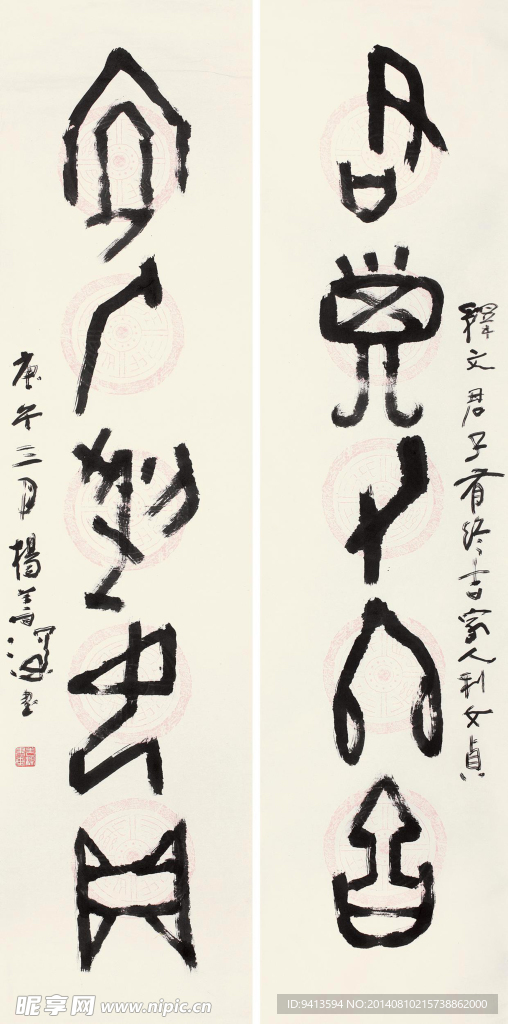 君子有終吉
釋文君子有终吉家人利女貞
家人利女貞
庚午三月楊善深書
昵享网 www.nipic.cn
ID:9413594 NO:20140810215738862000